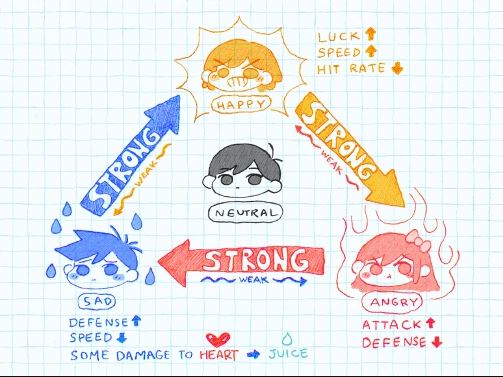 LUCK ↑
SPEED ↑
HIT RATE ↓
HAPPY
STRONG
WEAK
STRONG
WEAK
NEUTRAL
STRONG
WEAK
SAD
ANGRY
DEFENSE ↑
SPEED ↓
SOME DAMAGE TO HEART → JUICE
ATTACK ↑
DEFENSE ↓